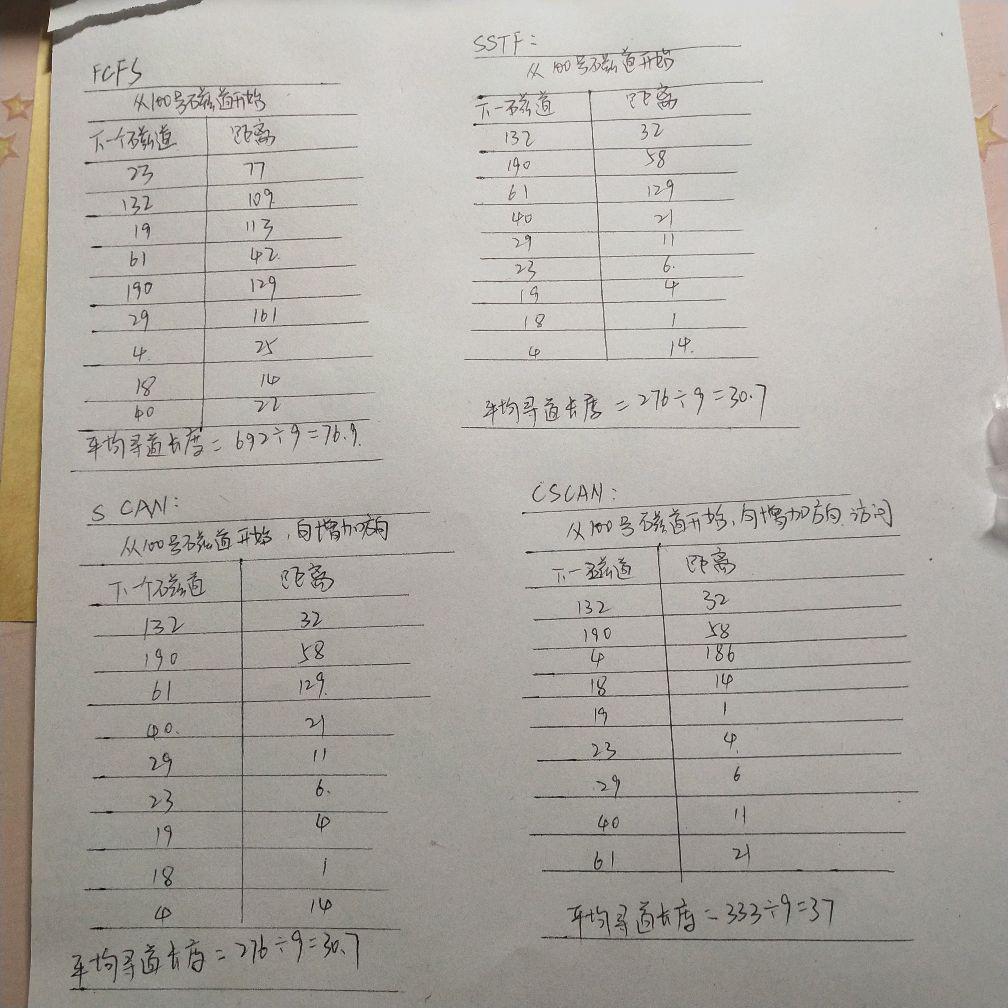 FCFS
从100号磁道开始
下一个磁道 距离
23 77
132 109
19 113
61 42
190 129
29 161
4 25
18 14
40 22
平均寻道长度=692÷9=76.9
SSTF:
从100号磁道开始
下一磁道 距离
132 32
190 58
61 129
40 21
29 11
23 6
19 4
18 1
4 14
平均寻道长度=276÷9=30.7
SCAN:
从100号磁道开始,向增加方向
下一个磁道 距离
132 32
190 58
61 129
40 21
29 11
23 6
19 4
18 1
4 14
平均寻道长度=276÷9=30.7
CSCAN:
从100号磁道开始,向增加方向访问
下一磁道 距离
132 32
190 58
4 186
18 14
19 1
23 4
29 6
40 11
61 21
平均寻道长度=333÷9=37